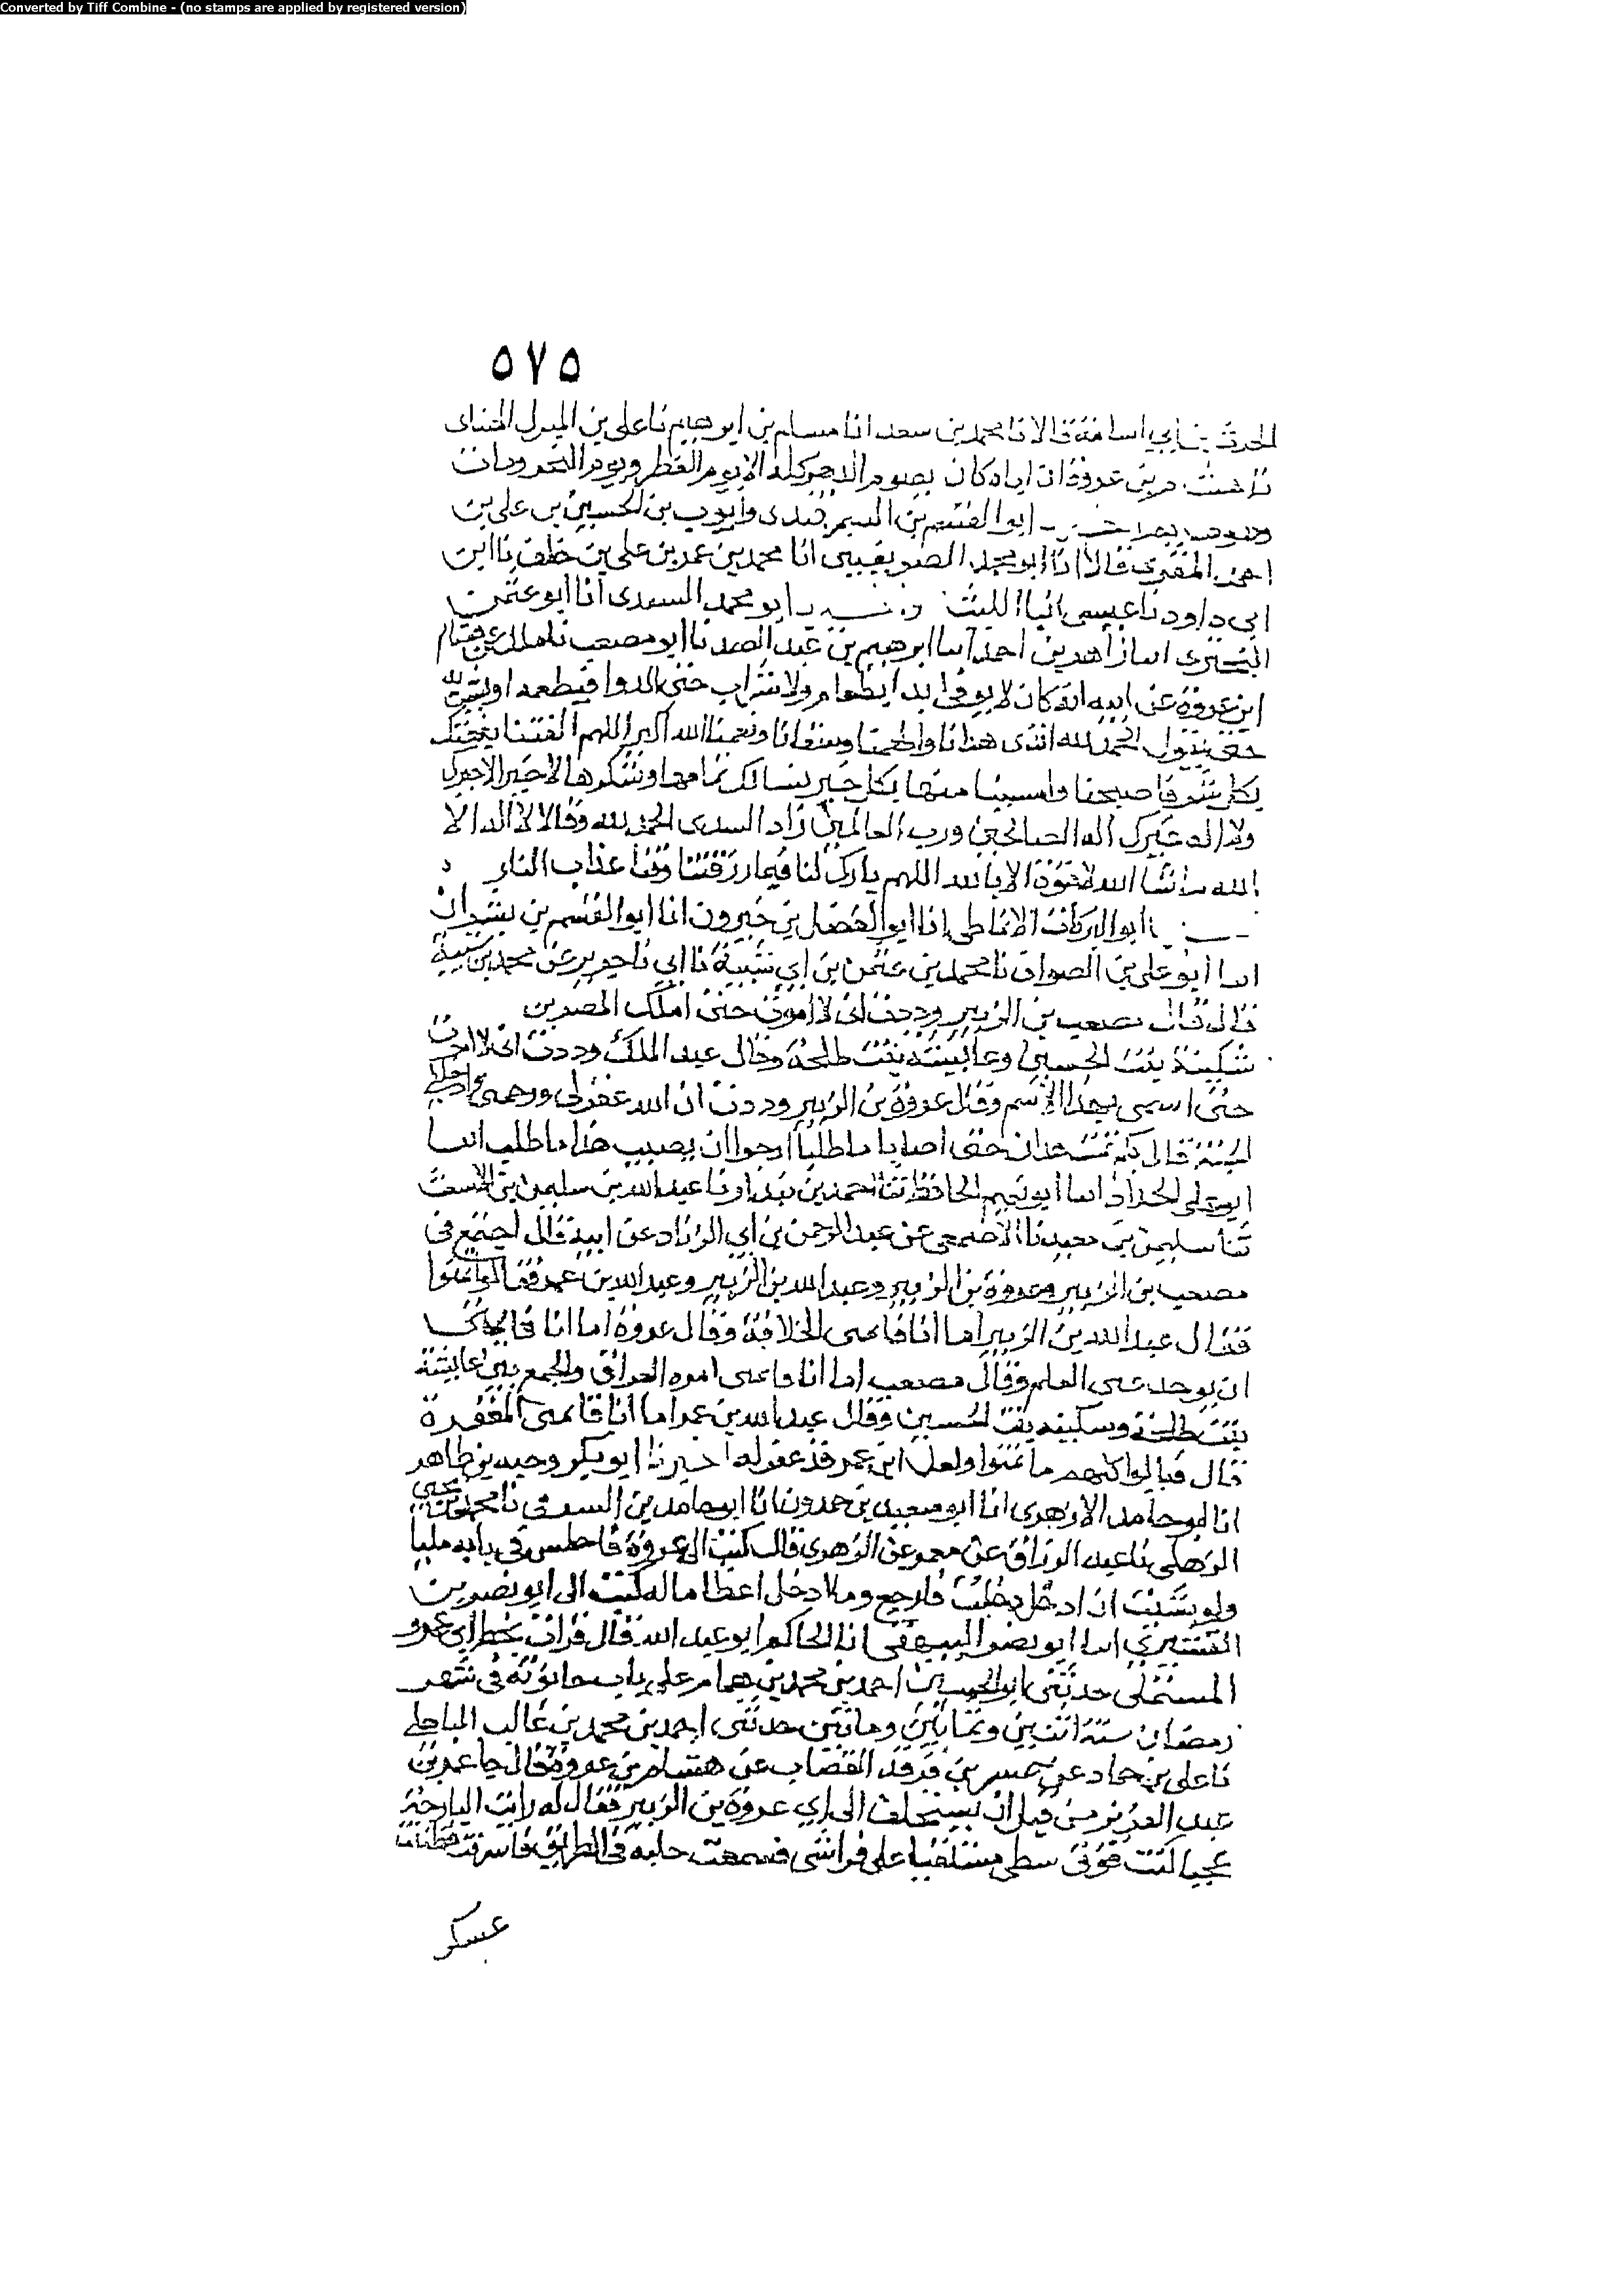 Converted by Tiff Combine - (no stamps are applied by registered version)
٥٧٥
الحرث بن ابي اسامة قالا نا محمد بن سعد انا مسلم بن ابرهيم نا علي بن المبرك الهنادى
نا هشام بن عروة ان اباه كان يصوم الدهر كله الا يوم الفطر ويوم النحر ومات
وهو صايم ابو القسم بن السمرقندى وابو الحسين بن علي بن
احمد المقرى قالا انا ابو محمد الصريفيني انا محمد بن عمر بن علي بن خلف نا ابن
ابى داود نا عيسى انبا الليث ابو محمد السيدى انا ابو عثمن
البحترى انبا زاهد بن احمد انبا ابرهيم بن عبد الصمد نا ابو مصعب نا ملك عن هشام
ابن عروة عن ابيه انه كان لا يوتى ابدا بطعام ولا شراب حتى الدوا فيطعمه او يشربه
حتى يقول الحمد لله الذى هدانا واطعمنا وسقانا ونعمنا الله اكبر اللهم الفتنا نعمتك
بكل شر فاصبحنا وامسينا منها بكل خير نسالك تمامها وشكرها لا خير الا خيرك
ولا اله غيرك اله الصالحين ورب العالمين زاد السيدى الحمد لله وقالا لا اله الا
الله ما شا الله لا قوة الا بالله اللهم بارك لنا فيما رزقتنا وقنا عذاب النار
ابو البركات الانماطي انا ابو الفضل بن خيرون انا ابو القسم بن بشران
انبا ابو علي بن الصواف نا محمد بن عثمن بن ابي شيبة نا ابي نا جرير عن محمد بن شيبة
قال قال مصعب بن الزبير وددت انى لا اموت حتى املك المصرين
سكينة بنت الحسين وعايشة بنت طلحة وقال عبد الملك وددت انى لا اموت
حتى اسمى بهذا الاسم وقال عروة بن الزبير وددت ان الله غفر لى ورحمنى وادخلنى
الجنة قال فما مت هذان حتى اصابا ما طلبا ارجوا ان يصيب هذا ما طلب انبا
ابو على الحداد انبا ابو نعيم الحافظ ثنا احمد بن بندار نا عبد الله بن سليمن بن الاشعث
ثنا سليمن بن معبد نا الاصمعي عن عبد الرحمن بن ابي الزناد عن ابيه قال اجتمع فى
مصعب بن الزبير وعروة بن الزبير وعبد الله بن الزبير وعبد الله بن عمر فقالوا تمنوا
فقال عبد الله بن الزبير اما انا فاتمنى الخلافة وقال عروة اما انا فاتمنى
ان يوخذ عنى العلم وقال مصعب اما انا فاتمنى امرة العراق والجمع بين عايشة
بنت طلحة وسكينة بنت الحسين وقال عبد الله بن عمر اما انا فاتمنى المغفرة
قال فنالوا كلهم ما تمنوا ولعل ابن عمر قد غفر له اخبرنا ابو بكر وجيه بن طاهر
انا ابو حامد الازهرى انا ابو سعيد بن حمدون انا ابو حامد بن الشرقى نا محمد بن يحيى
الذهلى نا عبد الرزاق عن معمر عن الزهرى قال كنت اتى عروة فاجلس فى بابه مليا
ولو شئت ان ادخل دخلت فارجع وما ادخل اعظاما له كتب الى ابو نصر بن
القشيري انبا ابو بكر البيهقى انا الحاكم ابو عبد الله قال قرات بخط ابى عمرو
المستملى حدثنى ابو الحسين احمد بن محمد بن همام على باب حانوته فى شهر
رمضان سنة اثنتين وثمانين ومائتين حدثنى احمد بن محمد بن غالب الباهلي
نا علي بن حماد عن بن فرقد القصاب عن هشام بن عروة قال جا عمر بن
عبد العزيز من قبل ان يستخلف الى ابي عروة بن الزبير فقال له رايت البارحة
عجبا كنت فوق سطحى مستلقيا على فراشى فسمعت جلبة فى الطريق فاشرفت فظننت
عسكر